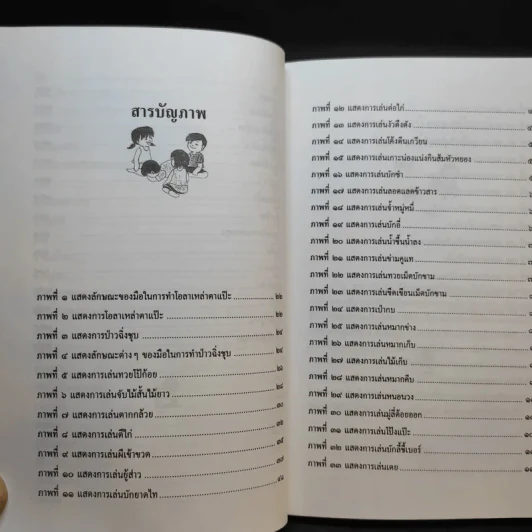 สารบัญภาพ
ภาพที่ ๑ แสดงลักษณะของมือในการทำโอลาเหล่าคาแป๊ะ ๒๒
ภาพที่ ๒ แสดงการโอลาเหล่าคาแป๊ะ ๒๒
ภาพที่ ๓ แสดงการเป่าฉิ่งชุบ ๒๔
ภาพที่ ๔ แสดงลักษณะต่างๆ ของมือในการทำเป่าฉิ่งชุบ ๒๔
ภาพที่ ๕ แสดงการเล่นทวยโป้ก้อย ๒๘
ภาพที่ ๖ แสดงการเล่นจับไม้สั้นไม้ยาว ๒๘
ภาพที่ ๗ แสดงการเล่นตากกล้วย ๓๐
ภาพที่ ๘ แสดงการเล่นตีไก่
ภาพที่ ๙ แสดงการเล่นผีเข้าขวด
ภาพที่ ๑๐ แสดงการเล่นงู้ส่าว ๓๗
ภาพที่ ๑๑ แสดงการเล่นบักยาดไท
ภาพที่ ๑๒ แสดงการเล่นต่อไก่
ภาพที่ ๑๓ แสดงการเล่นงัวดึงดัง
ภาพที่ ๑๔ แสดงการเล่นโค้งตีนเกวียน
ภาพที่ ๑๕ แสดงการเล่นเกาะน่องแน่งกินส้มหัวหอง
ภาพที่ ๑๖ แสดงการเล่นบักช้า
ภาพที่ ๑๗ แสดงการเล่นลอดแลดข้าวสาร
ภาพที่ ๑๘ แสดงการเล่นจ้ำหมู่หมี่
ภาพที่ ๑๙ แสดงการเล่นบักอี่
ภาพที่ ๒๐ แสดงการเล่นน้ำขึ้นน้ำลง
ภาพที่ ๒๑ แสดงการเล่นข่ามคูแท
ภาพที่ ๒๒ แสดงการเล่นทวยเม็ดบักขาม
ภาพที่ ๒๓ แสดงการเล่นขีดเขียนเม็ดบักขาม
ภาพที่ ๒๔ แสดงการเป่ากบ
ภาพที่ ๒๕ แสดงการเล่นหมากข่าง
ภาพที่ ๒๖ แสดงการเล่นหมากเก็บ
ภาพที่ ๒๗ แสดงการเล่นไม้เก็บ
ภาพที่ ๒๘ แสดงการเล่นหมากตีบ
ภาพที่ ๒๙ แสดงการเล่นหนอนวง
ภาพที่ ๓๐ แสดงการเล่นมู่สี่ต้อยออก
ภาพที่ ๓๑ แสดงการเล่นโป้งแป๊ะ
ภาพที่ ๓๒ แสดงการเล่นบักลี้ซี้เบอร์
ภาพที่ ๓๓ แสดงการเล่นเตย